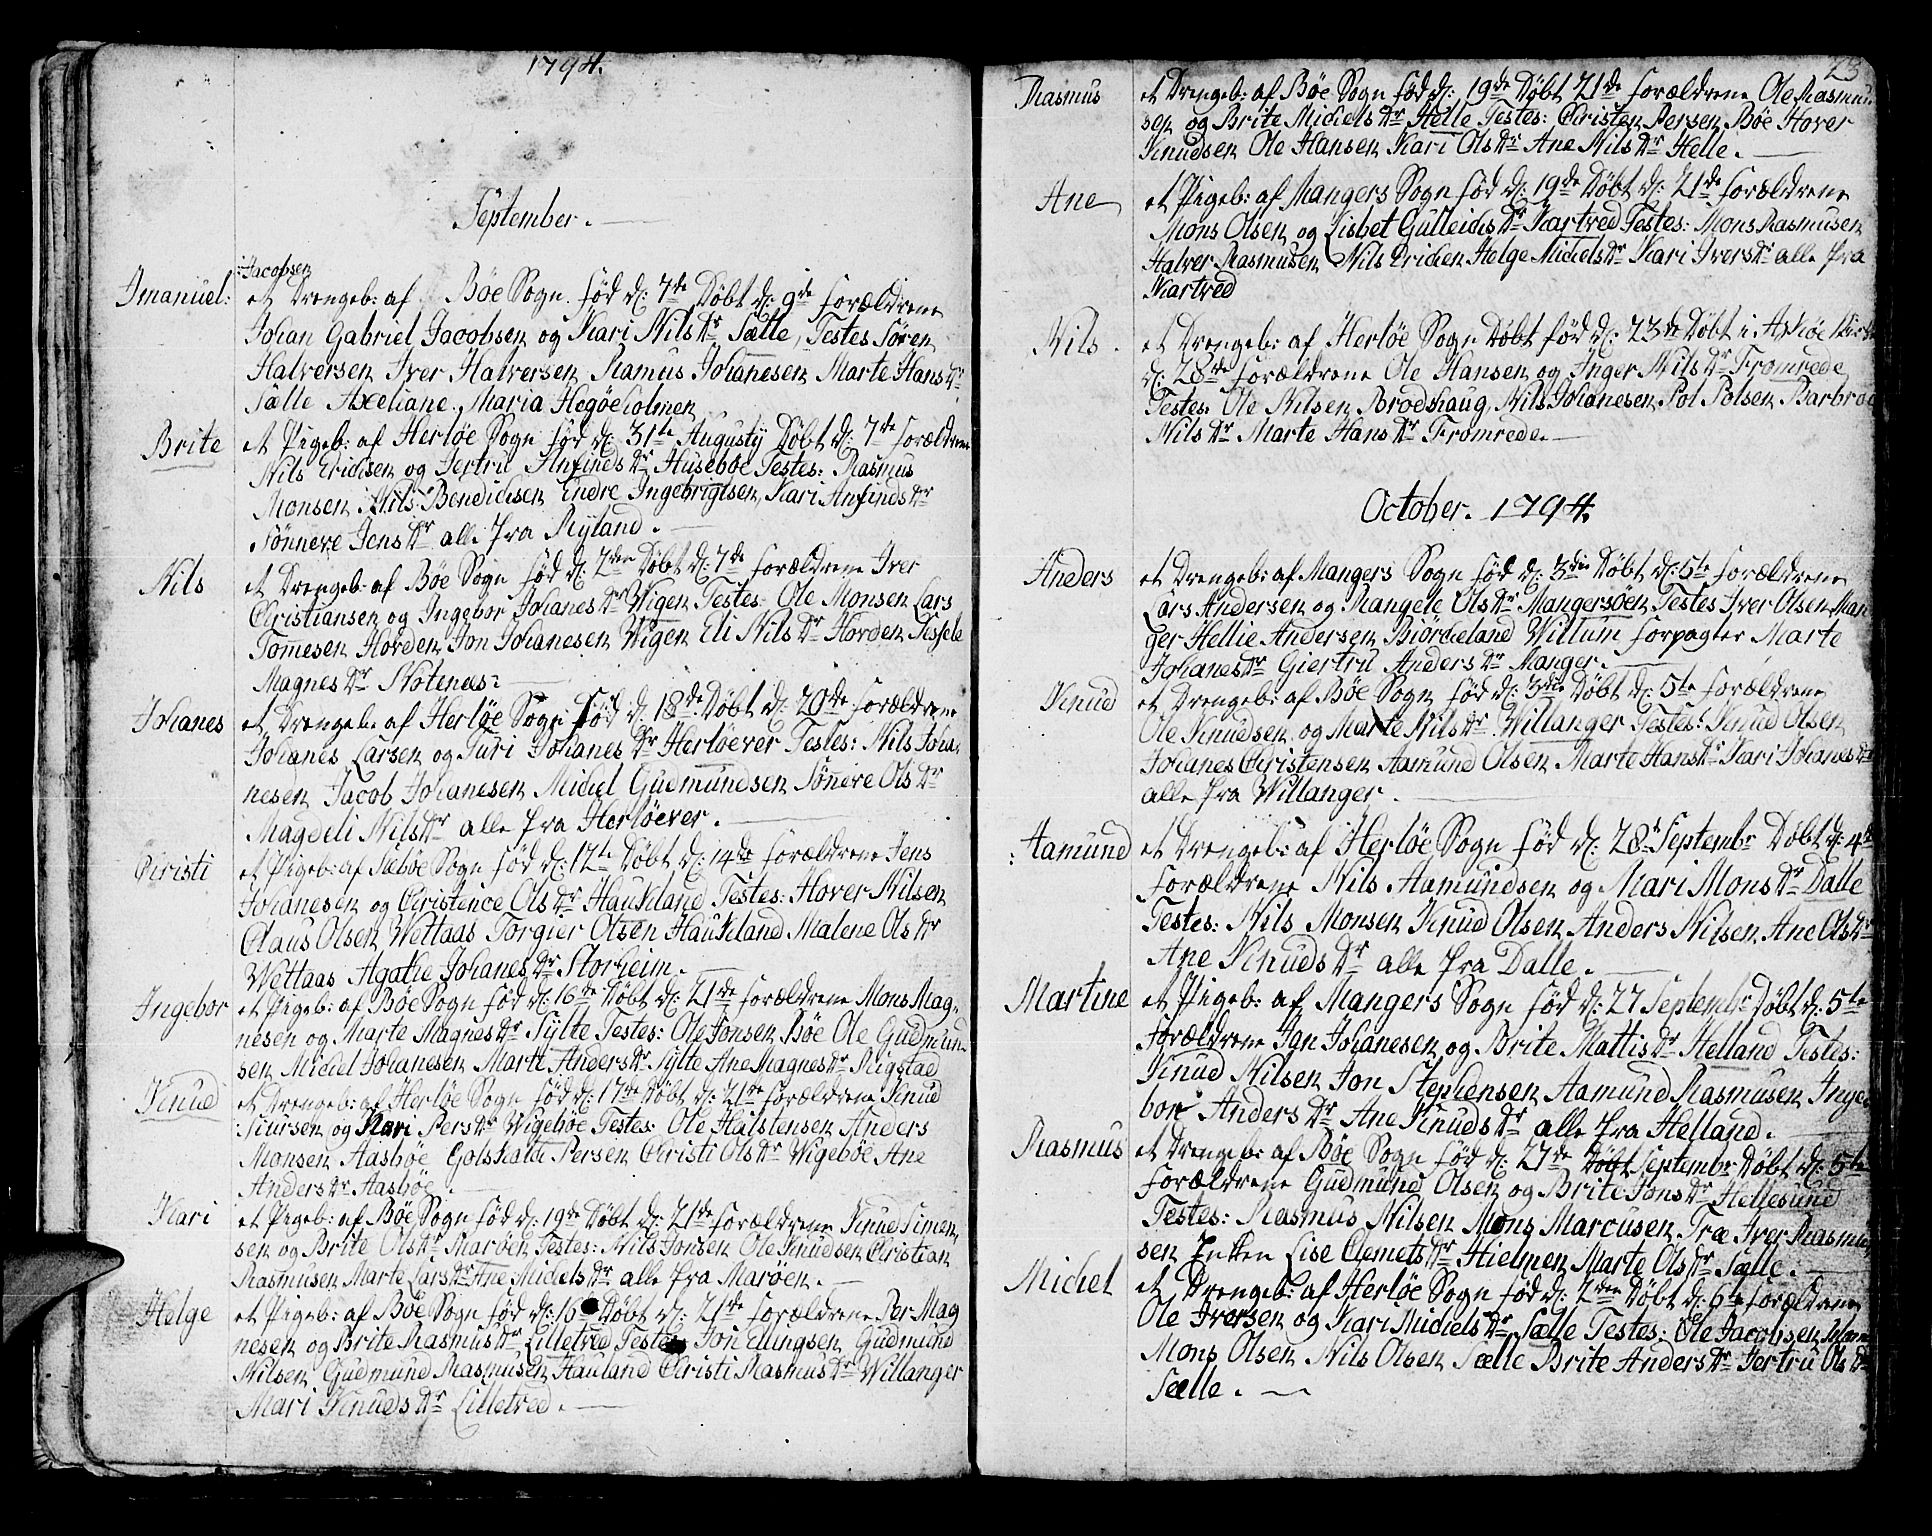 1794.
September.
Jacobsen
Imanuel: et Drengeb: af Bøe Sogn. fød d: 7de Døbt d: 9de forældrene
Johan Gabriel Jacobsen og Kari Nils Dr Sælle, Testes Søren
Halversen Iver Halversen Ramus Johanesen Marte Hans Dr
Sælle Axeliane Maria Hegøeholmen
Brite et Pigeb: af Herløe Sogn fød d: 31te Augusty Døbt d: 7de forældrene
Nils Erichsen og Jertru Anfinds Dr Husebøe Testes: Rasmus
Monsen Nils Bendichsen Endre Ingebrigtsen Kari Anfinds Dr
Sønneve Jens Dr alle fra Ryland.
Nils et Drengeb: af Bøe Sogn fød d: 2den Døbt d: 7de forældrene Iver
Christiansen og Ingebor Johanes Dr Wigen Testes: Ole Monsen Lars
Tomesen Horden Jon Johanesen Wigen Eli Nils Dr Horden Sessele
Magnes Dr Skotenes:
Johanes et Drengeb: af Herløe Sogn fød d: 18de Døbt d: 20de forældrene
Johanes Larsen og Turi Johanes Dr Herløever Testes: Nils Joha-
nesen Jacob Johanesen Michel Gudmundsen Sønneve Ols Dr
Magdeli Nils Dr alle fra Herløever.
Christi et Pigeb: af Sæbøe Sogn fød d: 12te Døbt d: 14de forældrene Jens
Johanesen og Christence Ols Dr Haukeland Testes: Hover Nilsen
Claus Olsen Wettaas Torgier Olsen Haukeland Malene Ols Dr
Wettaas Agathe Johanes Dr Storheim.
Ingebor et Pigeb: af Bøe Sogn fød d: 16de Døbt d: 21de forældrene Mons Mag-
nesen og Marte Magnes Dr Sylte Testes: Ole Jonsen Bøe Ole Gudmund
sen Michel Johanesen Marte Anders Dr Sylte Ane Magnes Dr Rigstad
Knud et Drengeb: af Herløe Sogn fød d: 17de Døbt d: 21de forældrene Knud
Siursen og Kari Pers Dr Wigebøe Testes: Ole Heilstensen Anders
Monsen Aasbøe Golskalck Persen Christi Ols Dr Wigebøe Ane
Anders Dr Aasbøe.
Kari et Pigeb: af Bøe Sogn fød d: 19de Døbt d: 21de forældrene Knud Simen
sen og Brite Ols Dr Marøen Testes: Nils Jonsen Ole Knudsen Christian
Rasmusen Marte Lars Dr Ane Michels Dr alle fra Marøen.
Helge et Pigeb: af Bøe Sogn fød d: 16 Døbt d: 21de forældrene Per Mag
nesen og Brite Rasmus Dr Lilletved Testes Jon Ellingsen Gudmund
Nilsen Gudmund Rasmusen Hauland Christi Rasmus Dr Willanger
Mari Knuds Dr Lilletved.
23
Rasmus et Drengeb: af Bøe Sogn fød d: 19de Døbt 21de forældrene Ole Rasmu
sen og Brite Michels Dr Helle Testes: Christen Persen Bøe Hover
Knudsen Ole Hansen Kari Ols Dr Ane Nils Dr Helle.
Ane et Pigeb: af Mangers Sogn fød d: 19de Døbt d: 21de forældrene
Mons Olsen og Lisbet Gulleichs Dr Kartved Testes: Mons Rasmusen
Halver Rasmusen Nils Erichsen Helge Michels Dr Kari Ivers Dr alle fra
Kartved
Nils et Drengeb: af Herløe Sogn Døbt fød d: 23de Døbt i Askøe
d: 28de forældrene Ole Hansen og Inger Nils Dr Fromrede
Testes: Ole Nilsen Brodshaug Nils Johanesen Pol Polsen Barbroe
Nils Dr Marte Hans Dr Fromrede.
October. 1794.
Anders et Drengeb: af Mangers Sogn fød d: 3die Døbt d: 5te forældrene
Lars Andersen og Rangele Ols Dr Mangersøen Testes Iver Olsen Man
ger Hellie Andersen Biørckeland Willum forpagter Marte
Johanes Dr Giertru Anders Dr Manger.
Knud et Drengeb: af Bøe Sogn fød d: 3die Døbt d: 5te forældrene
Ole Knudsen og Marte Nils Dr Willanger Testes: Knud Olsen
Johanes Christensen Aamund Olsen Marte Hans Dr Kari Johanes Dr
alle fra Willanger.
Aamund et Drengeb: af Herløe Sogn fød d: 28 Septembr Døbt d: 4de
forældrene Nils Aamundsen og Mari Mons Dr Dalle
Testes: Nils Monsen Knud Olsen Anders Nilsen Ane Ols Dr
Ane Knuds Dr alle fra Dalle.
Martine et Pigeb: af Mangers Sogn fød d: 27 Septembr Døbt d: 5te
forældrene Jan Johanesen og Brite Mattis Dr Helland Testes:
Knud Nilsen Jon Stephensen Aamund Rasmusen Inge
bor Anders Dr Ane Knuds Dr alle fra Helland.
Rasmus et Drengeb: af Bøe Sogn fød d: 27de Døbt Septembr Døbt d: 5te
forældrene Gudmund Olsen og Brite Jons Dr Hellesund
Testes: Rasmus Nilsen Mons Marcusen Træ Iver Rasmu
sen Enken Lise Clemets Dr Hielmen Marte Ols Dr Sælle.
Michel et Drengeb: af Herløe Sogn fød d: 2den Døbt d: 6te forældrene
Ole Iversen og Kari Michels Dr Sælle Testes: Ole Jacobsen
Mons Olsen Nils Olsen Sælle Brite Anders Dr Jertru Ols Dr
Sælle.